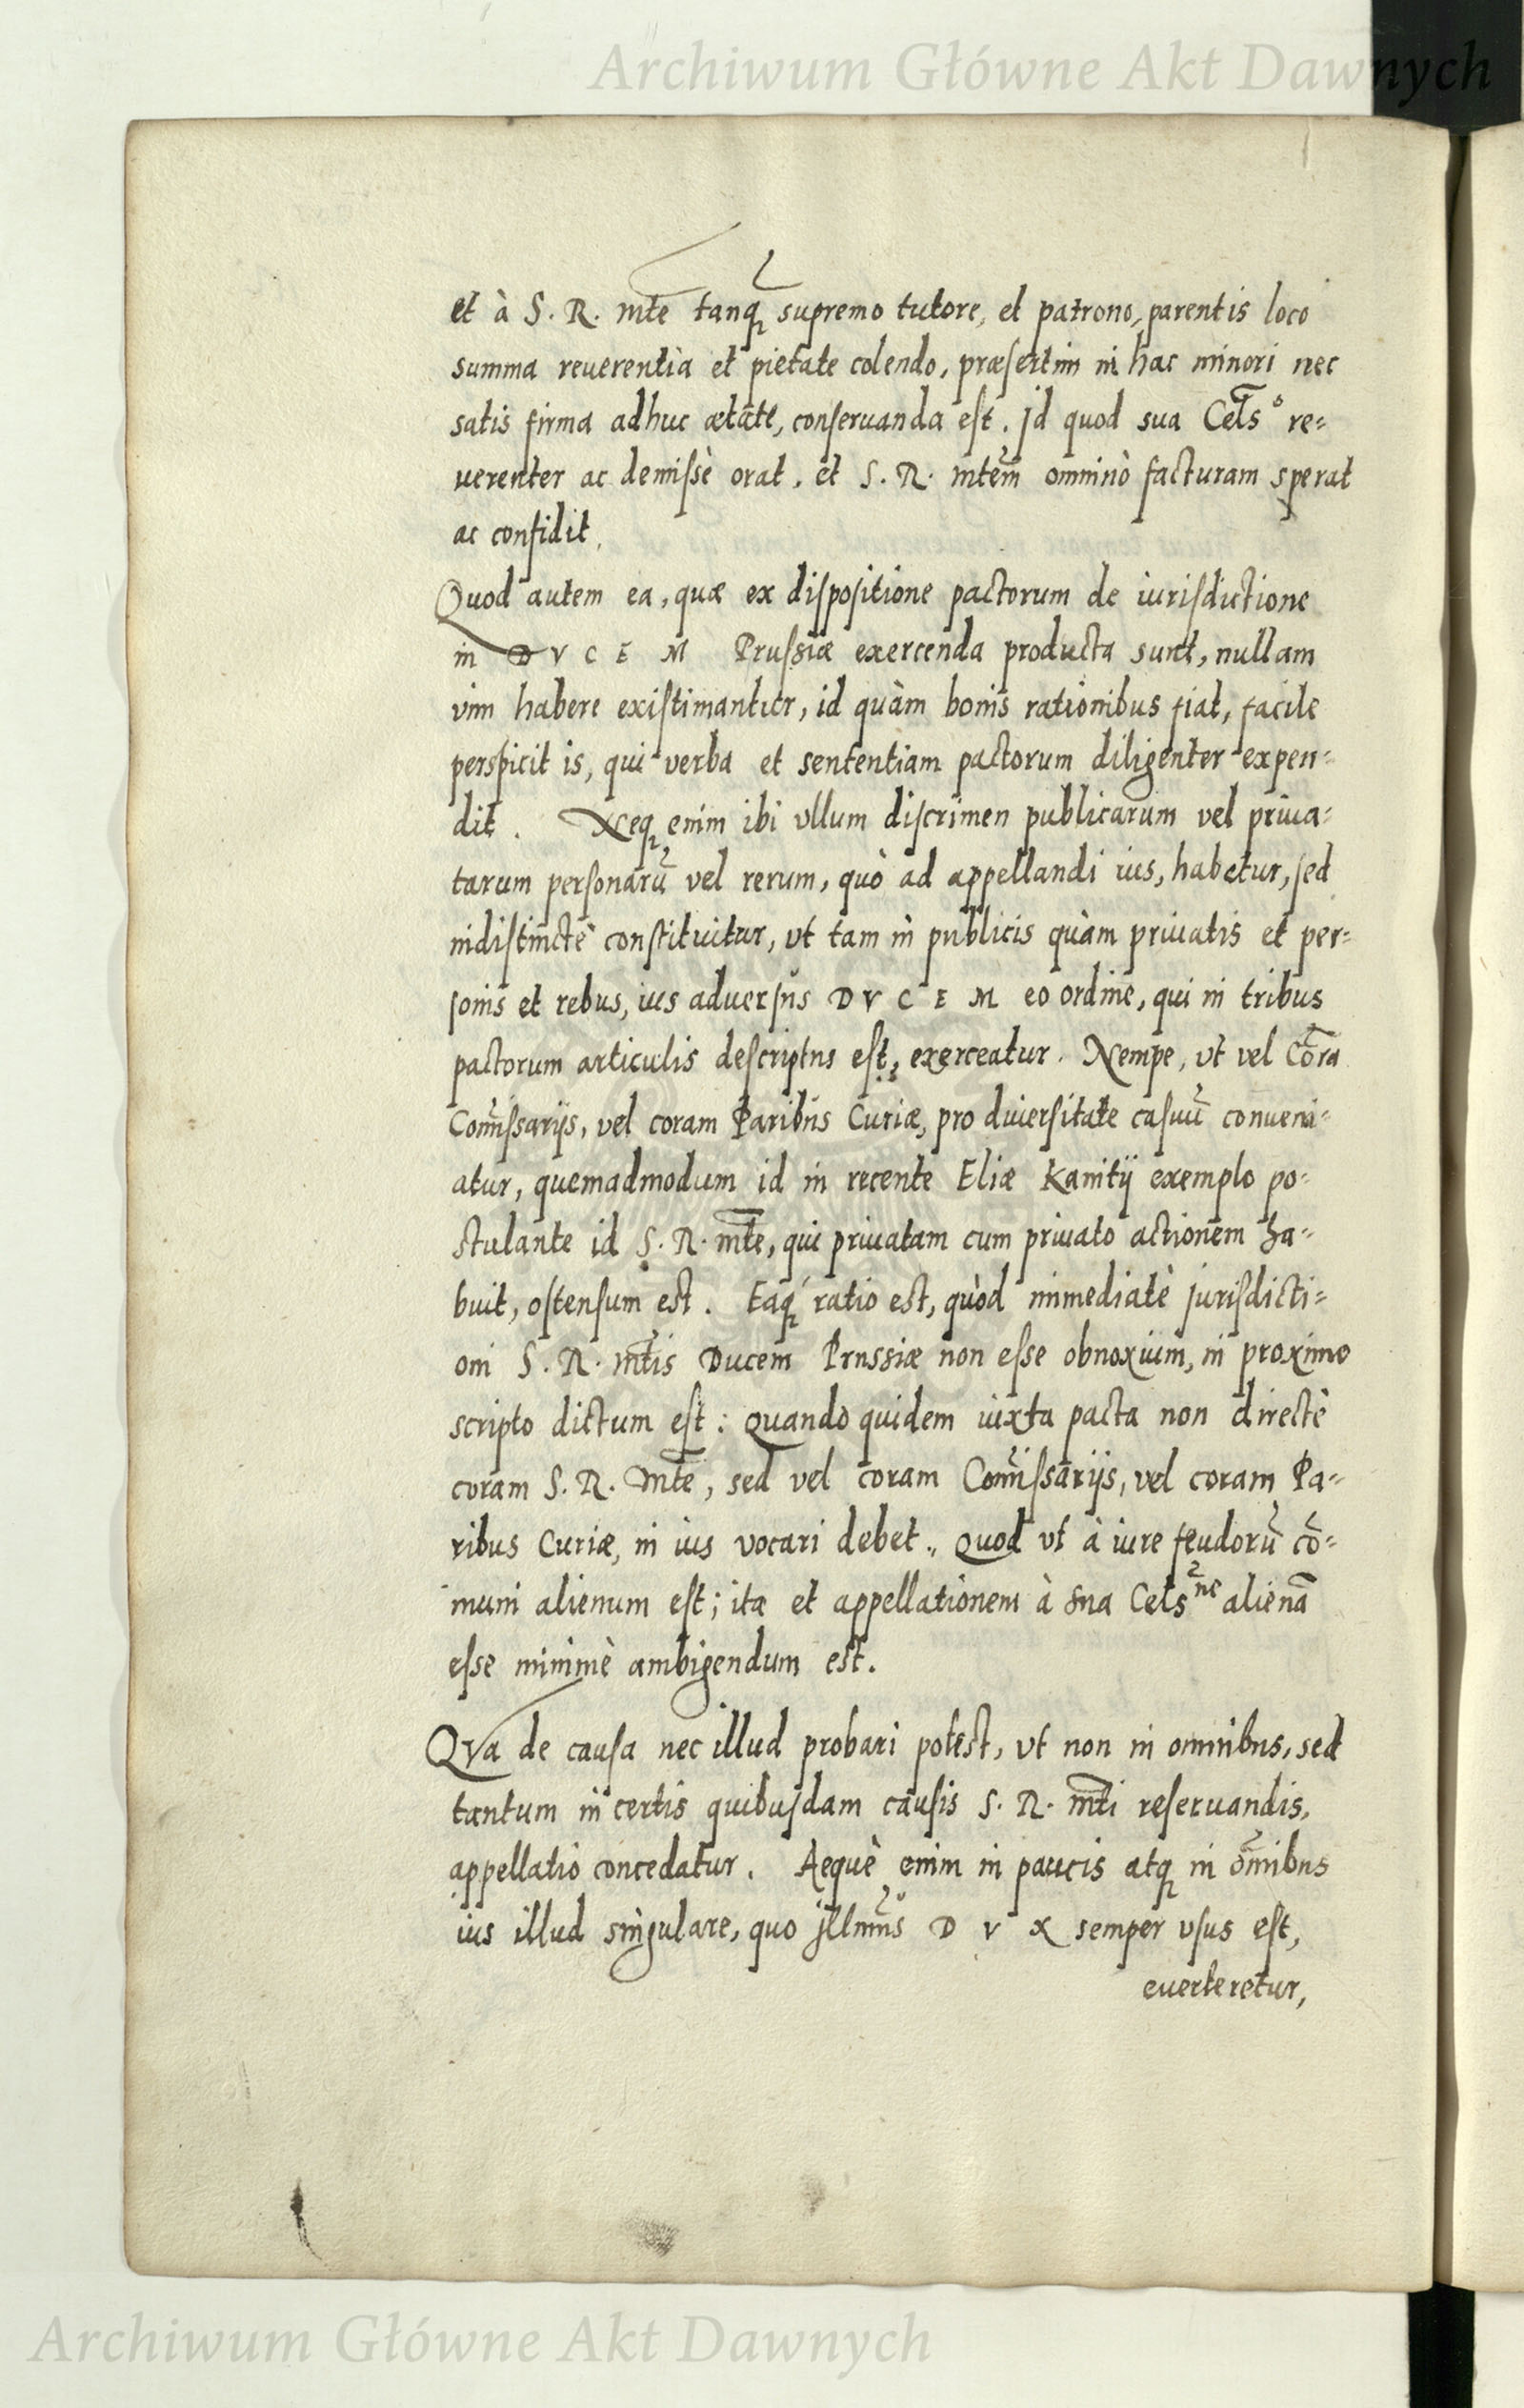 Archiwum Główne Akt Dawnych
et à S. R. mte tanq̃ supremo tutore, et patrono, parentis loco
summa reuerentia et pietate colendo, præsertim in hac minori nec
satis firma adhuc ætate, conseruanda est. Id quod sua Celsº re=
uerenter ac demissè orat, et S. R. mtem omninò facturam sperat
ac confidit.
Quod autem ea, quæ ex dispositione pactorum de iurisdictione
in D V C E M Prussiæ exercenda producta sunt, nullam
vim habere existimantur, id quàm bonis rationibus fiat, facile
perspicit is, qui verba et sententiam pactorum diligenter expen=
dit. Neq; enim ibi vllum discrimen publicarum vel priua=
tarum personarũ vel rerum, quò ad appellandi ius, habetur, sed
indistinctè constituitur, vt tam in publicis quàm priuatis et per=
sonis et rebus, ius aduersùs D V C E M eo ordine, qui in tribus
pactorum articulis descriptus est, exerceatur. Nempe, vt vel Corã
Com̃issarijs, vel coram Paribus Curiæ, pro diuersitate casuũ conueni=
atur, quemadmodum id in recente Eliæ Kanitij exemplo po=
stulante id S. R. mte, qui priuatam cum priuato actionem ha=
buit, ostensum est. Eaq; ratio est, quòd immediatè jurisdicti=
oni S. R. mtis Ducem Prussiæ non esse obnoxium, in proximo
scripto dictum est: Quando quidem iuxta pacta non directè
coram S. R. Mte, sed vel coram Com̃issarijs, vel coram Pa=
ribus Curiæ, in ius vocari debet. Quod vt à iure feudorũ cõ=
muni alienum est; ita et appellationem à sua Celsne alienã
esse minimè ambigendum est.
QVa de causa nec illud probari potest, vt non in omnibus, sed
tantum in certis quibusdam causis S. R. mti reseruandis,
appellatio concedatur. Aequè enim in paucis atq; in om̃ibus
ius illud singulare, quo Jllmũs D V X semper vsus est,
euerteretur,
Archiwum Główne Akt Dawnych